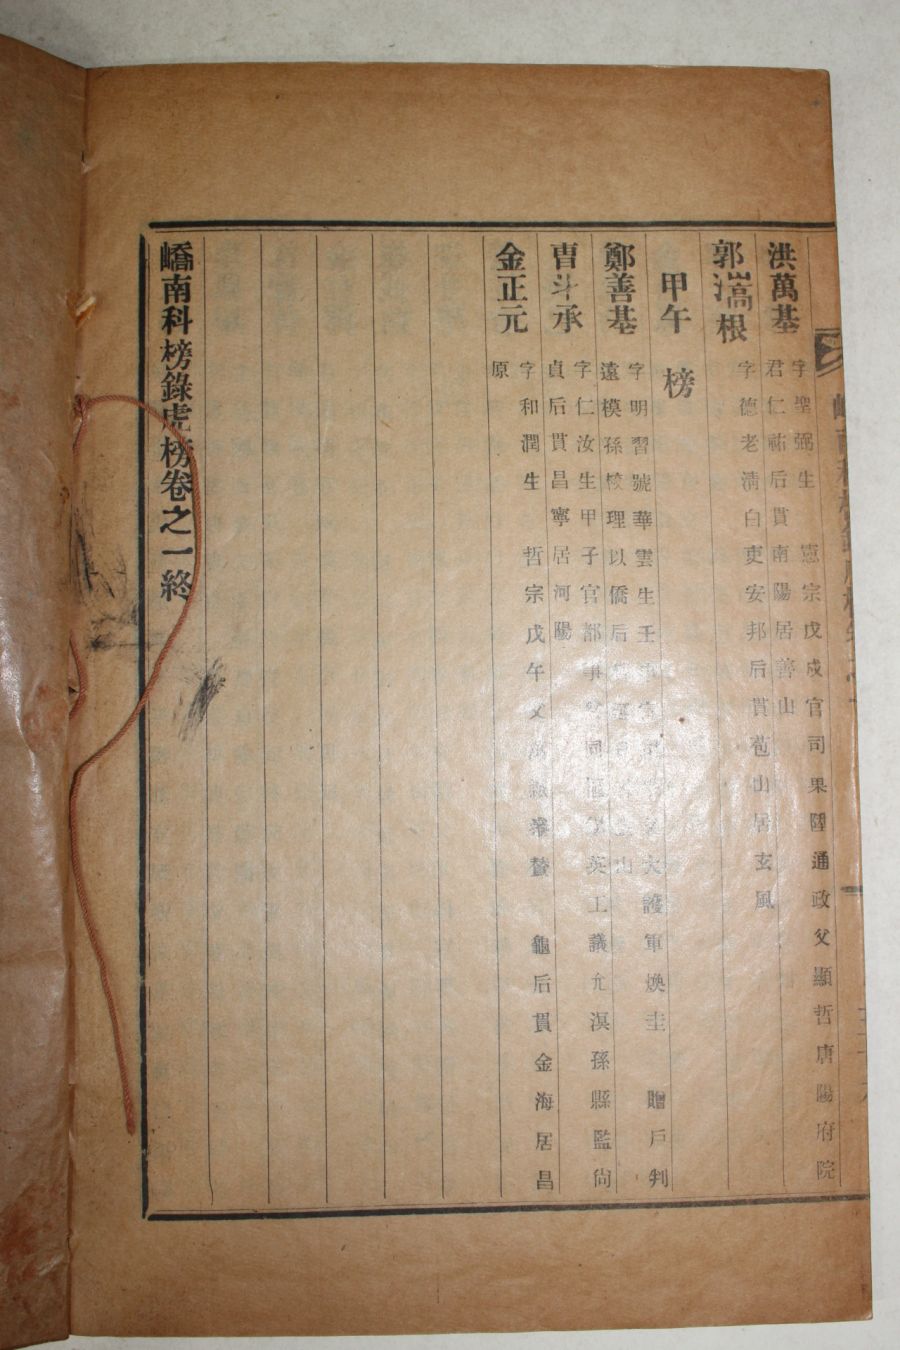 洪萬基
字聖弼生憲宗戊戌官司果陞通政父顯哲唐陽府院
君仁祐后貫南陽居善山
郭灇根
字德老淸白吏安邦后貫苞山居玄風
甲午榜
鄭善基
字明習號華雲生壬 大護軍煥圭贈戶判
遠模孫校理以僑后 山
曺斗承
字仁汝生甲子官部事 英工議允淏孫縣監尙
貞后貫昌寧居河陽
金正元
字和潤生哲宗戊午父 龜后貫金海居昌
原
嶠南科榜錄虎榜卷之一終